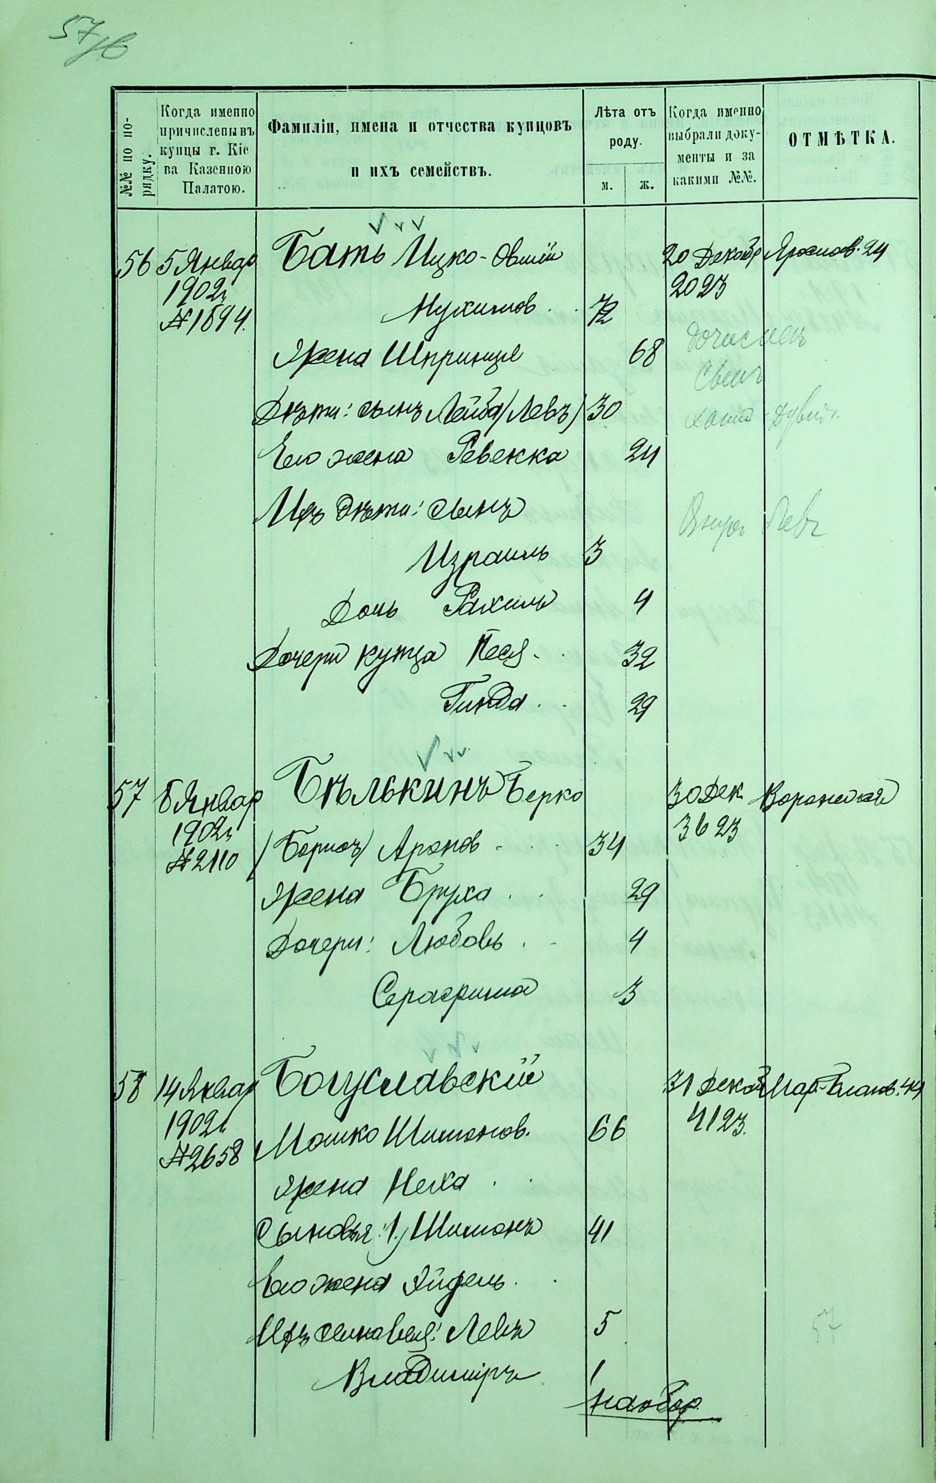 57
№№ по по-
рядку.
Когда именно
причислены въ
купцы г. Кіе
ва Казенною
Палатою.
Фамиліи, имена и отчества купцовъ
и ихъ семействъ.
Лѣта отъ
роду.
м.
ж.
Когда именно
выбрали доку-
менты и за
какими №№.
ОТМѢТКА.
56 5 Январ Бать Ицко-Овшій 20 Декабр Ярослов. 24
1902 г. 2023
№1894. Нухимов. 72
Жена Шпринце 68
Дѣти: сынъ Лейба (Левъ) 30
Его жена Ревекка 24
Ихъ дѣти: сынъ Внук Левъ
Израиль 3
Дочь Рахиль 4
Дочери купца Песя 32
Гинда 29
57 5 Январ Бѣлькинъ Берко 30 Дек. Воронской
1902 г. 3623
№2110 (Борисъ) Аронов 34
Жена Бруха 29
Дочери: Любовь 4
Серафима 3
58 14 Январ Богуславскій 31 Декаб Мар.-Благов. 44
1902 г. 4123.
№2658 Мошко Шимонов. 66
Жена Неха
Сыновья: 1) Шимонъ 41
Его жена Эйдель
Ихъ сыновья: Левъ 5
Владиміръ 1
на обор.
57